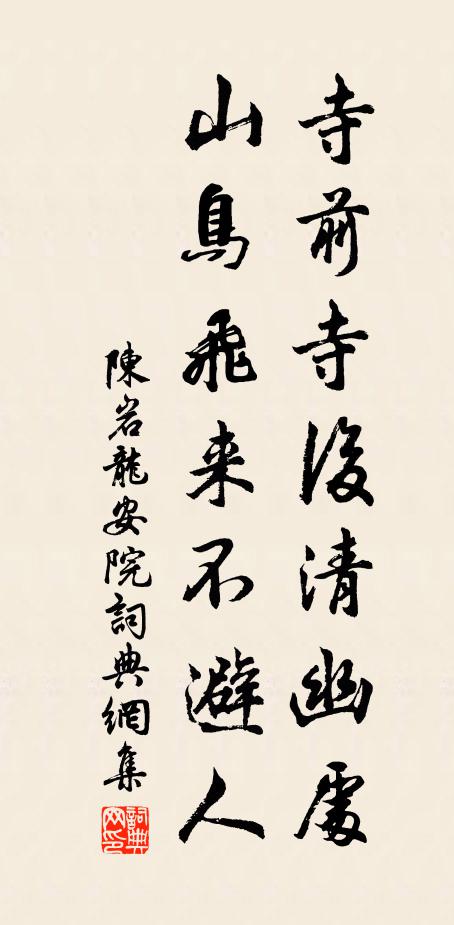 寺前寺後清幽處
山鳥飛来不避人
陳岩龍安院詞典網集
詞典網印